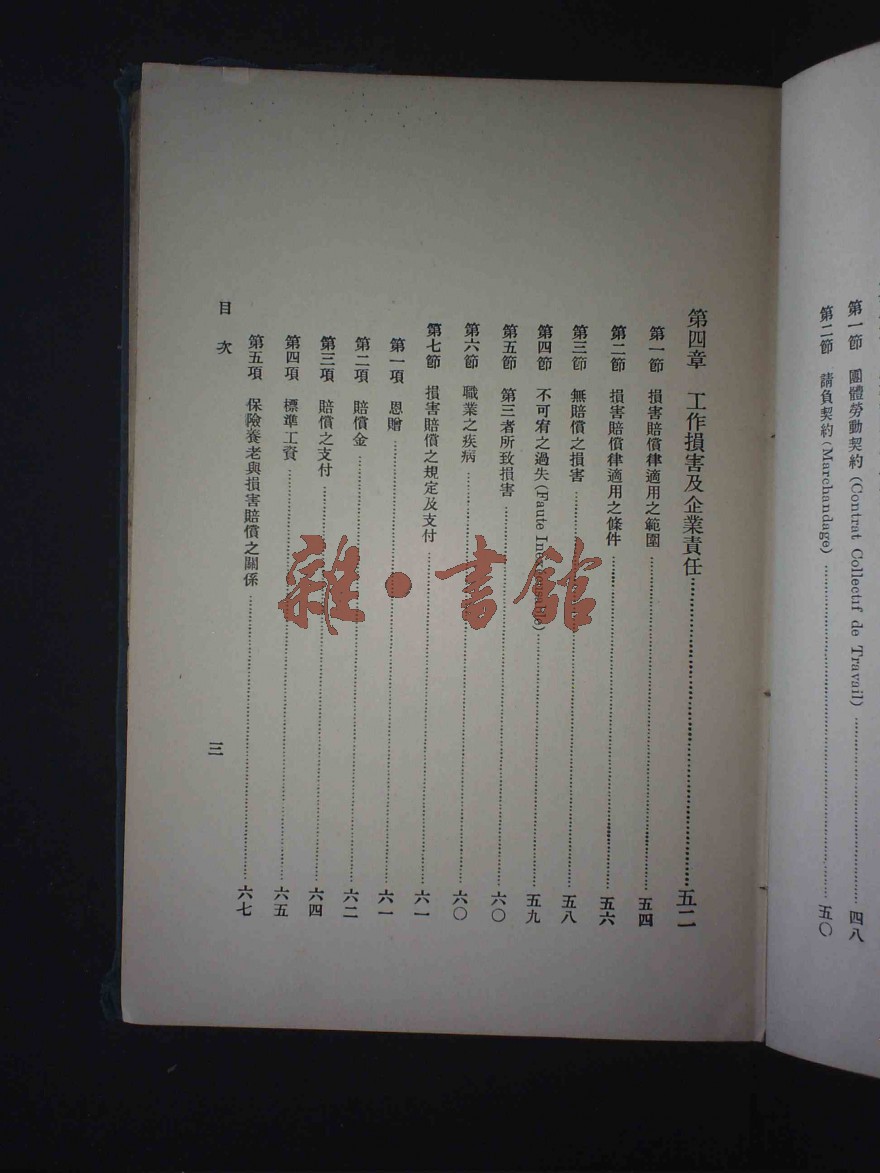 第一節 團體勞動契約(Contrat Collectif de Travail)⋯⋯四八
第二節 請負契約(Marchandage)⋯⋯五〇
第四章 工作損害及企業責任⋯⋯五二
第一節 損害賠償律適用之範圍⋯⋯五四
第二節 損害賠償律適用之條件⋯⋯五六
第三節 無賠償之損害⋯⋯五八
第四節 不可宥之過失(Faute Inexcusable)⋯⋯五九
第五節 第三者所致損害⋯⋯六〇
第六節 職業之疾病⋯⋯六〇
第七節 損害賠償之規定及支付⋯⋯六一
第一項 恩贈⋯⋯六一
第二項 賠償金⋯⋯六二
第三項 賠償之支付⋯⋯六四
第四項 標準工資⋯⋯六五
第五項 保險養老與損害賠償之關係⋯⋯六七
目次
三
雜·書館